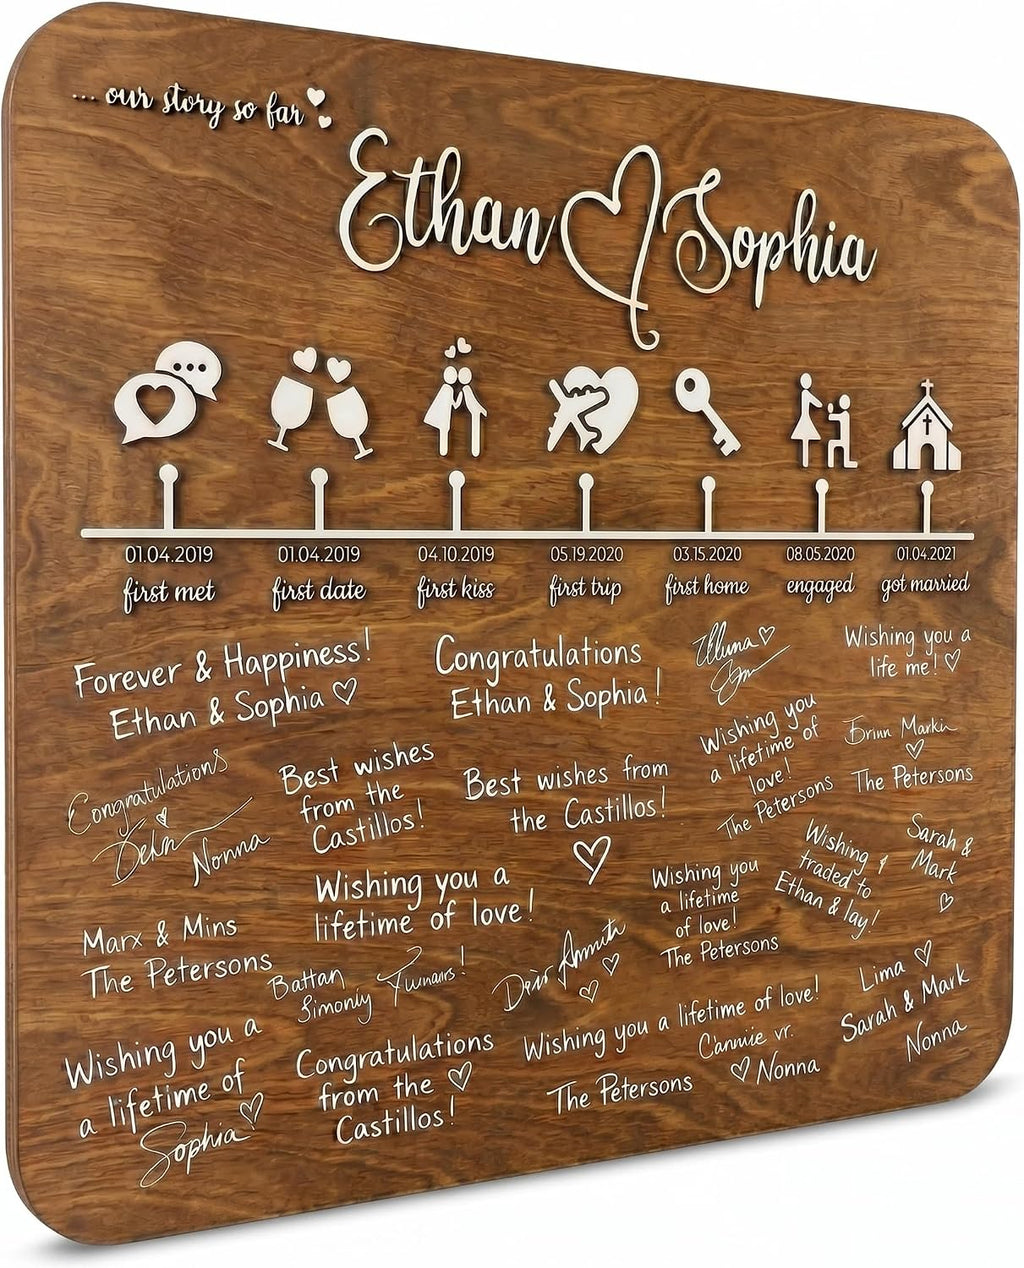 ... our story so far
Ethan Sophia
01.04.2019
first met
01.04.2019
first date
04.10.2019
first kiss
05.19.2020
first trip
03.15.2020
first home
08.05.2020
engaged
01.04.2021
got married
Forever & Happiness!
Ethan & Sophia
Congratulations
Ethan & Sophia!
Wishing you a
life me!
Congratulations
Nonna
Best wishes
from the
Castillos!
Best wishes from
the Castillos!
Wishing you
a lifetime of
love!
The Petersons
The Petersons
Marx & Mins
The Petersons
Wishing you a
lifetime of love!
Wishing you
a lifetime
of love!
The Petersons
Wishing &
traded to
Ethan & lay!
Sarah &
Mark
Battan
Simonly
Wishing you a
a lifetime of
Sophia
Congratulations
from the
Castillos!
Wishing you a lifetime of love!
The Petersons
Cannie vr.
Nonna
Lima
Sarah & Mark
Nonna